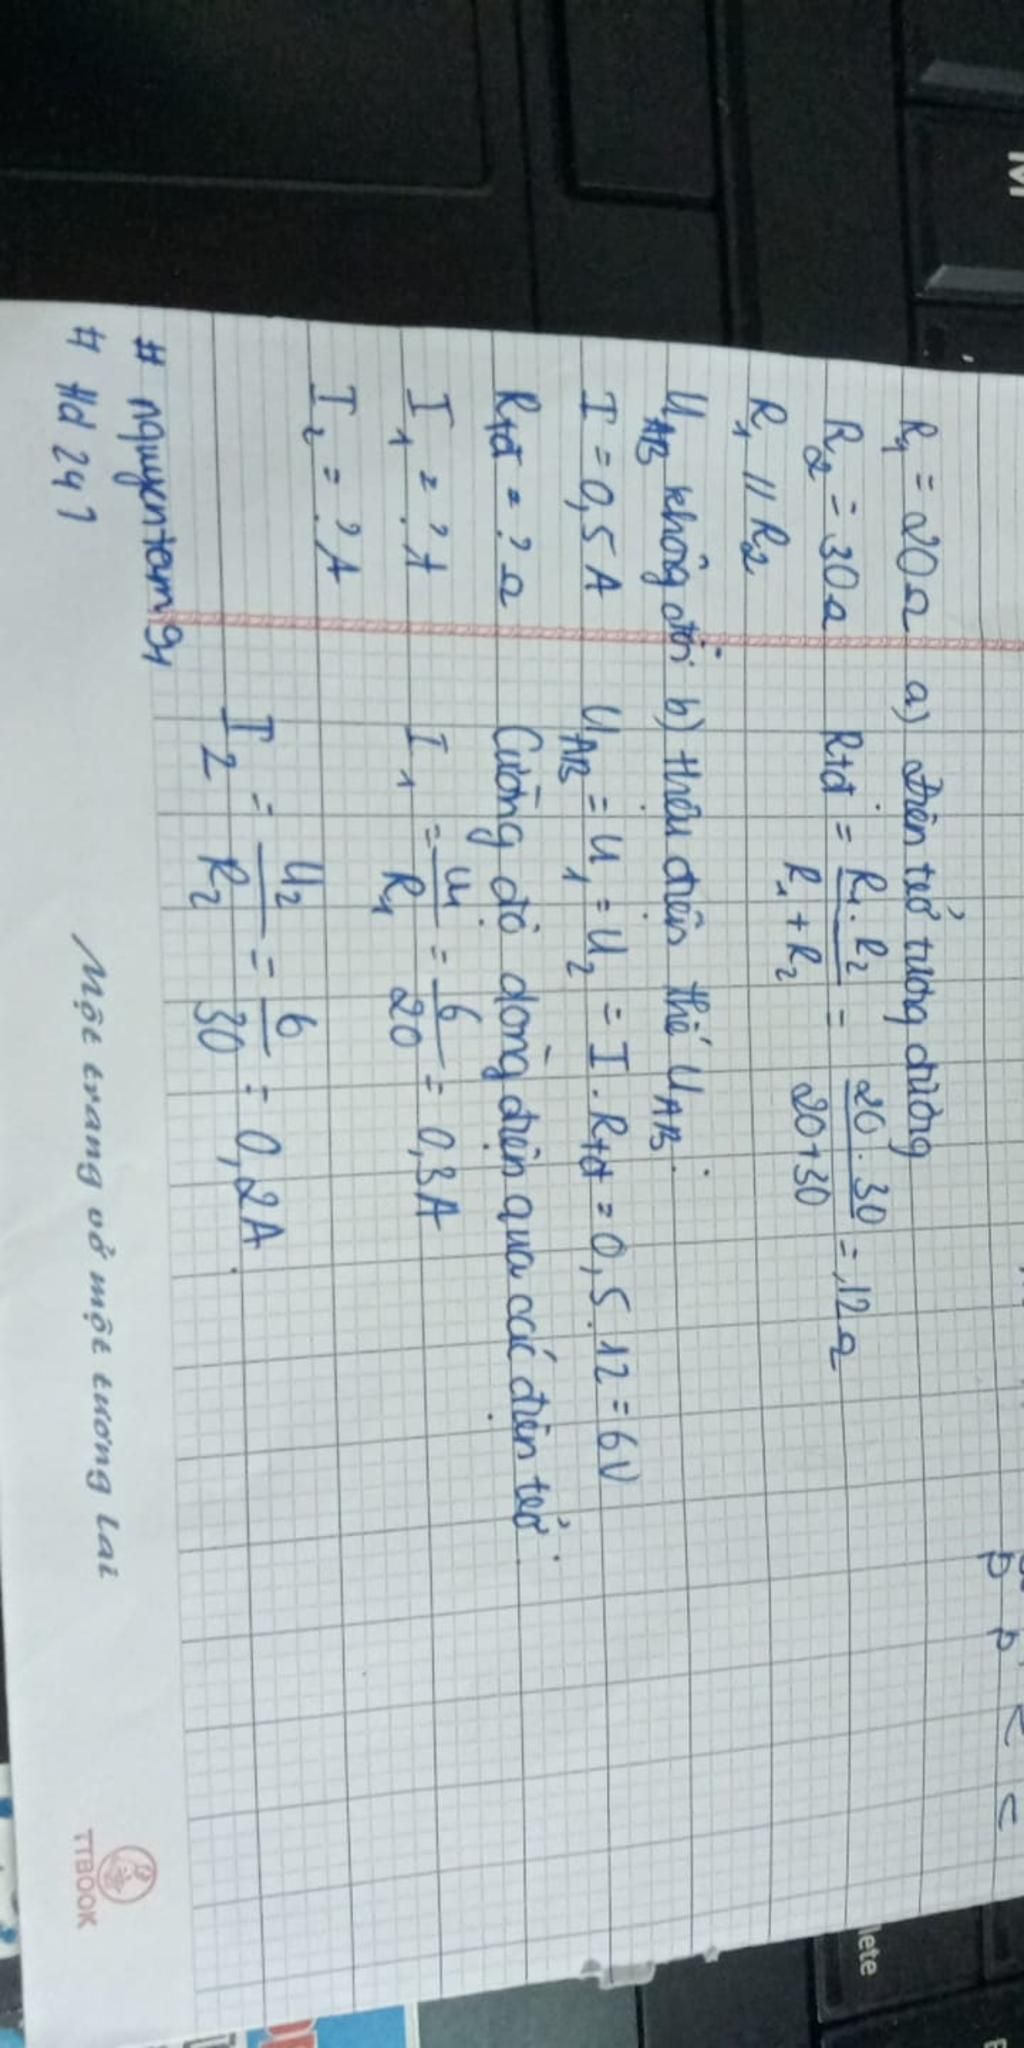 R1 = 20Ω
R2 = 30Ω
R1 // R2
UAB không đổi
I = 0,5 A
Rtđ = ? Ω
I1 = ? A
I2 = ? A
# nguyentam94
# Hd 247
a) Điện trở tương đương
Rtđ = R1 . R2 / R1 + R2 = 20 . 30 / 20+30 = 12Ω
b) Hiệu điện thế UAB
UAB = U1 = U2 = I . Rtđ = 0,5 . 12 = 6V
Cường độ dòng điện qua các điện trở
I1 = U1 / R1 = 6 / 20 = 0,3A
I2 = U2 / R2 = 6 / 30 = 0,2A
Một trang vở một tương lai
TTBOOK
M
lete